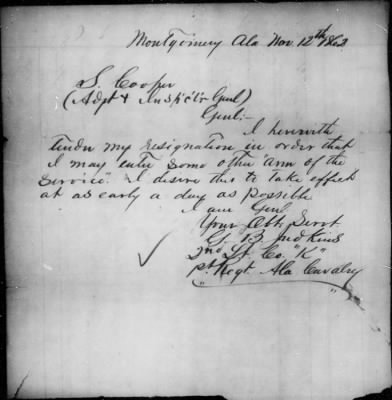 Montgomery Ala Nov. 12th 1862
S. Cooper
(Adpt & Inspct'r Genl)
Genl:-
I herewith
tender my resignation in order that
I may enter some other arm of the
service. I desire this to take effect
at as early a day as possible
I am Genl
Your Obt. Servt.
G. B. Judkins
2nd Lt. Co. "K"
1st Regt Ala Cavalry